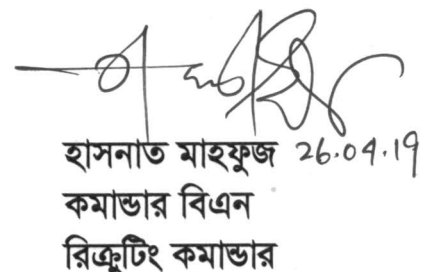 হাসনাত মাহফুজ 26.04.19
কমান্ডার বিএন
রিক্রুটিং কমান্ডার